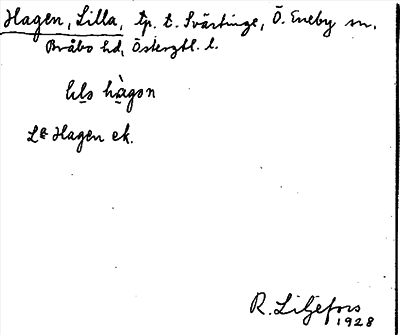 Hagen, Lilla, tp. t. Svärtinge, Ö. Eneby sn,
Bråbo hd, Östergtl. l.
lıla hàgan
La Hagen ek.
R. Liljefors
1928